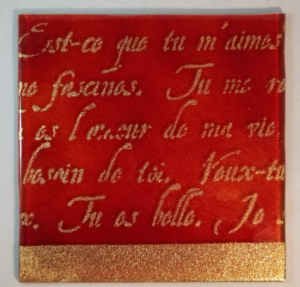 Est-ce que tu m'aimes
me fascines. Tu me re
es l'amour de ma vie.
besoin de toi. Veux-tu
x. Tu es belle. Je s